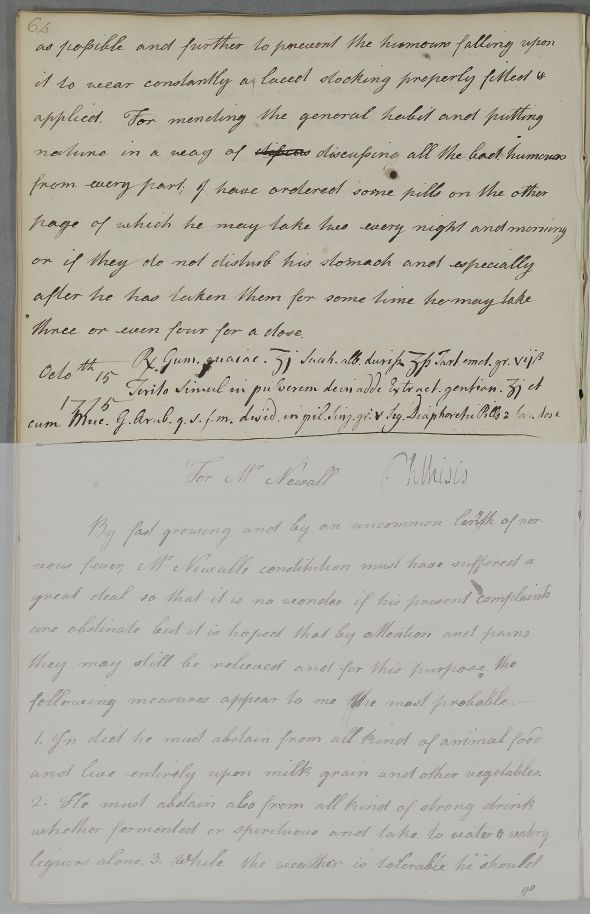 64
as possible and further to prevent the humours falling upon
it to wear constantly a laced stocking properly fitted &
applied. For mending the general habit and putting
nature in a way of discussing all the bad humours
from every part, I have ordered some pills on the other
page of which he may take two every night and morning
or if they do not disturb his stomach and especially
after he has taken them for some time he may take
three or even four for a dose.
Octo 15th ℞ Gum. guaiac. ʒj Sacch. alb. duriss ʒss Tart. emet. gr. viiss
1775 Terito simul in pulverem dein adde Extract. gentian. ʒj et
cum Muc. G. Arab. q. s. f. m. divid. in pil. sing. gr. v Sig. Diaphoretic Pills 2 for a dose
For Mr Newall Phthisis
By fast growing and by an uncommon lenth of ner-
vous fever, Mr Newalls constitution must have suffered a
great deal so that it is no wonder if his present complaints
are obstinate but it is hoped that by attention and pains
they may still be relieved and for this purpose the
following measures appear to me the most probable.—
1. In diet he must abstain from all kind of animal food
and live entirely upon milk grain and other vegetables.
2. He must abstain also from all kind of strong drink
whether fermented or spirituous and take to water & watery
liquors alone. 3. While the weather is tolerable he should
go